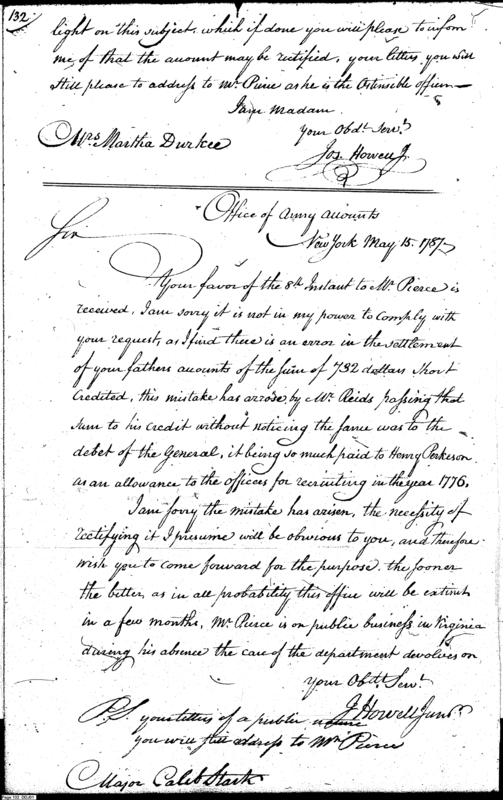 132
light on this subject. which if done you will please to inform
me, of that the amount may be rectified, your letters, you will
still please to address to Mr. Pierce as he is the Ostensible officer—
I am Madam
Your Obdt. Servt.
Mrs. Martha Durkee
Jos. Howell Jr.
Office of Army accounts
New York May 15. 1787
Sir
Your favor of the 8th Instant to Mr. Pierce is
received. I am sorry it is not in my power to comply with
your request, as I find there is an error in the settlement
of your fathers accounts of the sum of 732 dollars short
Credited, this mistake has arrose, by Mr. Reids passing that
sum to his credit without noticing the same was to the
debet of the General, it being so much paid to Henry Perkerson
as an allowance to the officers for recruiting in the year 1776.
I am sorry the mistake has arisen, the necessity of
rectifying it I presume will be obvious to you, and therefore
wish you to come forward for the purpose. the sooner
the better, as in all probability this office will be extinct
in a few months. Mr. Pierce is on public business in Virginia
during his absence the care of the department devolves on
Your Obdt. Servt.
J Howell Junr.
P.S. your letters of a public nature
you will still address to Mr. Pierce
Major Caleb Stark